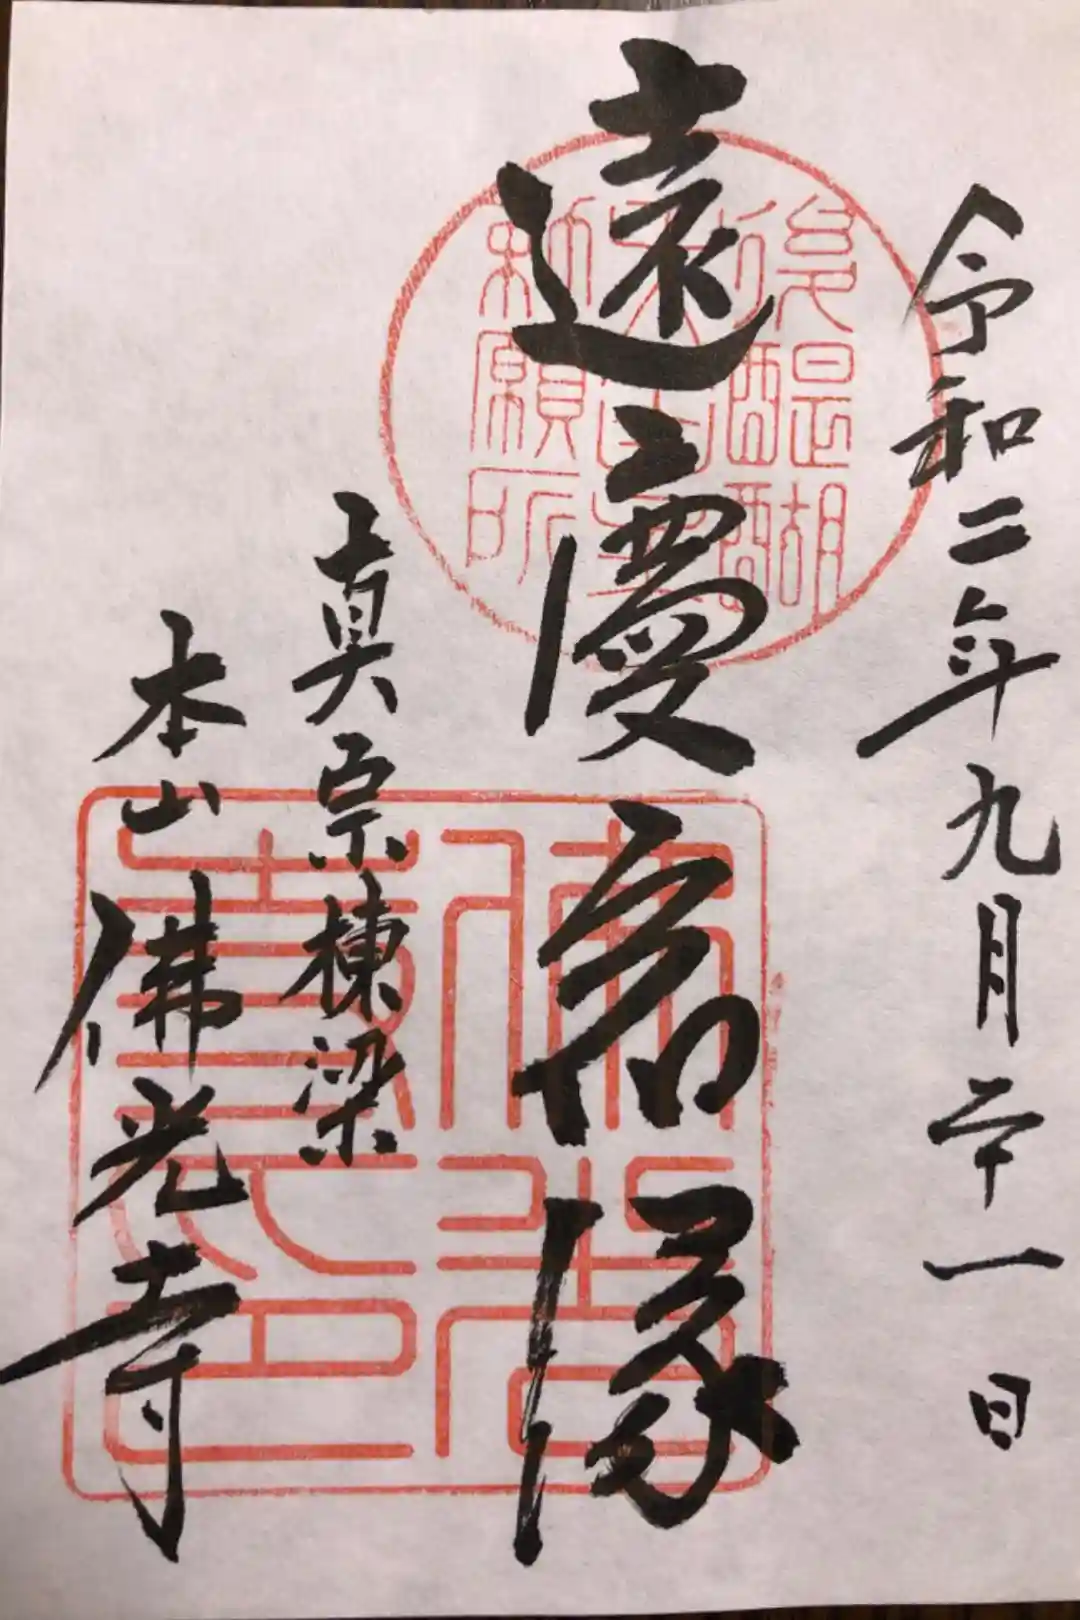 令和二年九月二十一日
遠慶宿縁
真宗棟梁
本山佛光寺
後醍醐
天皇
勅願所